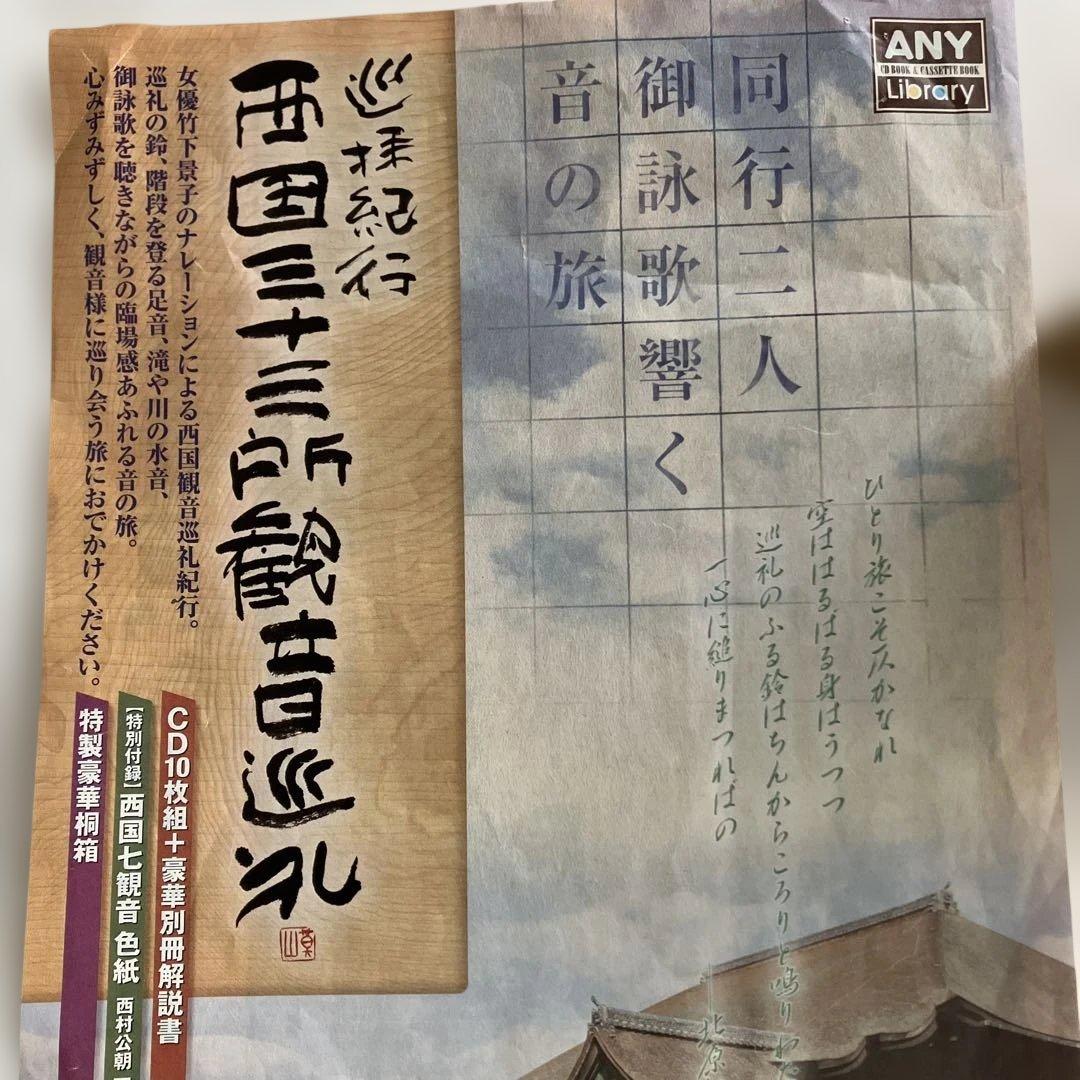 ANY
CD BOOK & CASSETTE BOOK
Library
同行二人
御詠歌響く
音の旅
ひとり旅こそ仄かなれ
空ははるばる身はうつつ
巡礼のふる鈴はちんからころりと鳴りわた
一心に縋りまつればの
北原
巡拝紀行
西国三十三所観音巡礼
女優竹下景子のナレーションによる西国観音巡礼紀行。
巡礼の鈴、階段を登る足音、滝や川の水音、
御詠歌を聴きながらの臨場感あふれる音の旅。
心みずみずしく、観音様に巡り会う旅におでかけください。
CD10枚組+豪華別冊解説書
【特別付録】西国七観音 色紙 西村公朝
特製豪華桐箱